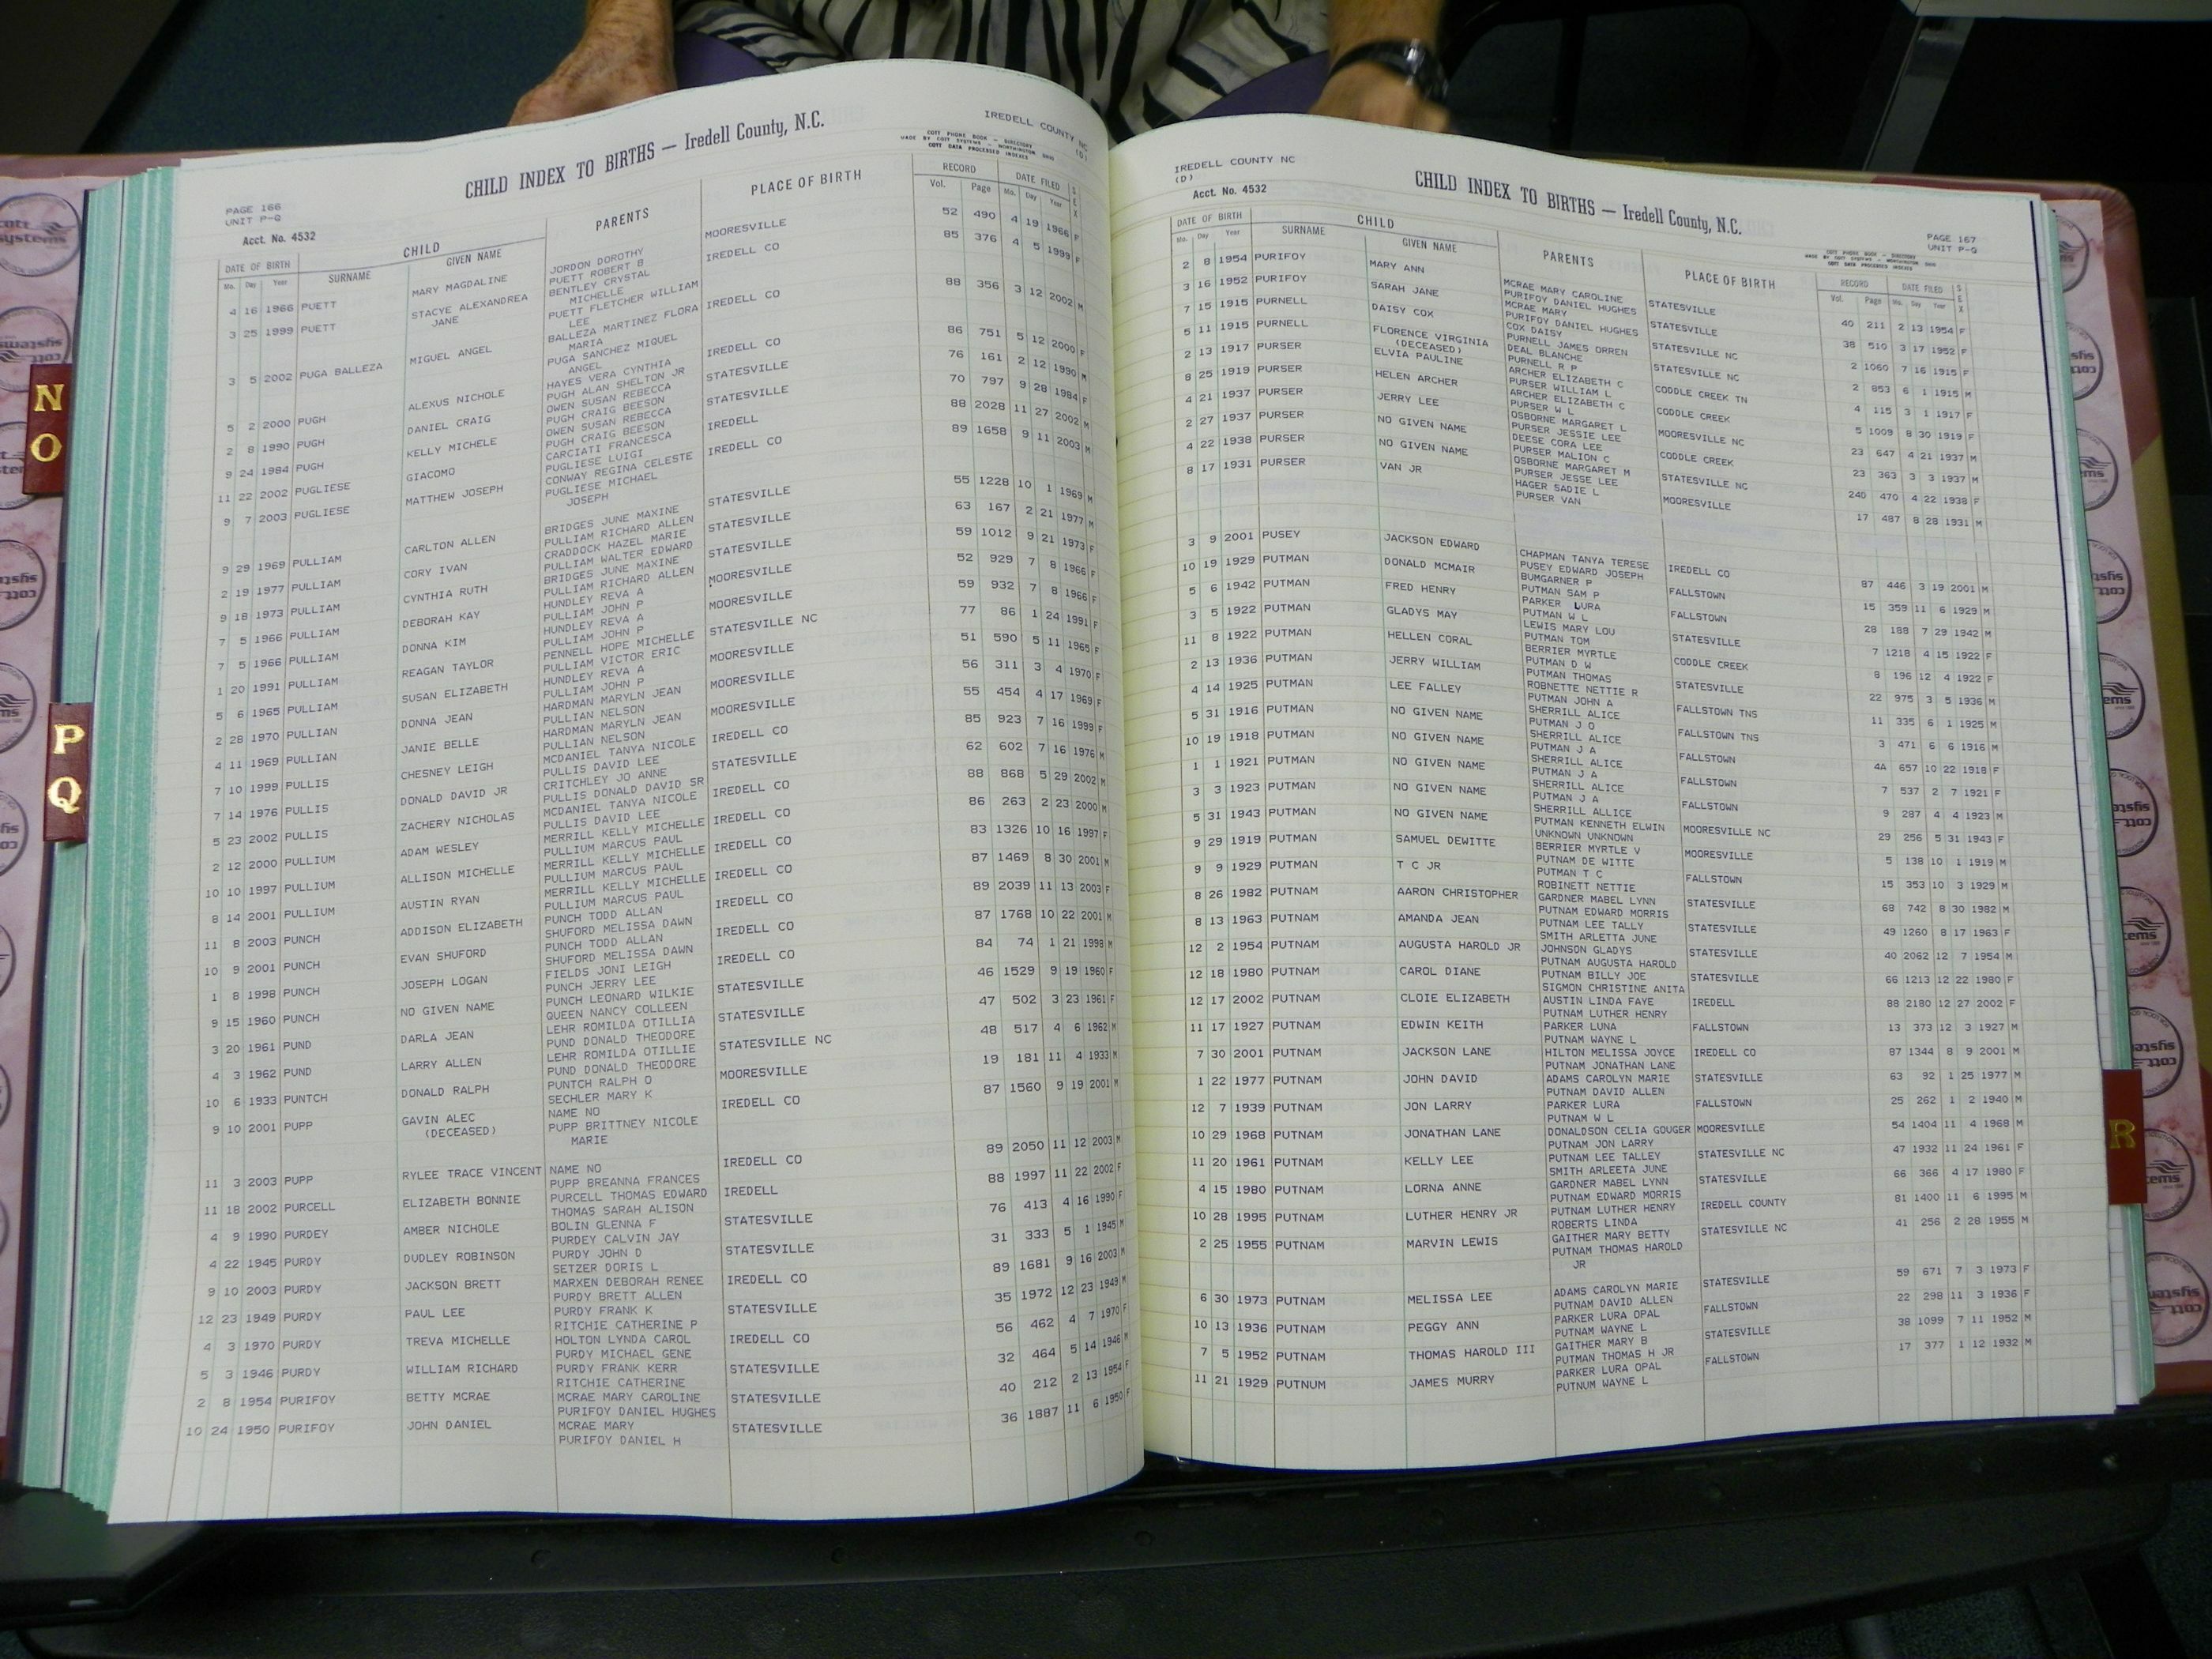 IREDELL COUNTY NC
(D)
CHILD INDEX TO BIRTHS — Iredell County, N.C.
COTT PHONE BOOK - DIRECTORY
MADE BY COTT SYSTEMS - WORTHINGTON OHIO
COTT DATA PROCESSED INDEXES
PAGE 166
UNIT P-Q
Acct. No. 4532
DATE OF BIRTH CHILD PARENTS PLACE OF BIRTH RECORD DATE FILED SEX
Mo. Day Year SURNAME GIVEN NAME Vol. Page Mo. Day Year
4 16 1966 PUETT MARY MAGDALINE JORDON DOROTHY MOORESVILLE 52 490 4 19 1966 F
PUETT ROBERT B
3 25 1999 PUETT STACYE ALEXANDREA BENTLEY CRYSTAL IREDELL CO 85 376 4 5 1999 F
JANE MICHELLE
PUETT FLETCHER WILLIAM
LEE
3 5 2002 PUGA BALLEZA MIGUEL ANGEL BALLEZA MARTINEZ FLORA IREDELL CO 88 356 3 12 2002 M
MARIA
PUGA SANCHEZ MIQUEL
ANGEL
5 2 2000 PUGH ALEXUS NICHOLE HAYES VERA CYNTHIA IREDELL CO 86 751 5 12 2000 F
PUGH ALAN SHELTON JR
2 8 1990 PUGH DANIEL CRAIG OWEN SUSAN REBECCA STATESVILLE 76 161 2 12 1990 M
PUGH CRAIG BEESON
9 24 1984 PUGH KELLY MICHELE OWEN SUSAN REBECCA STATESVILLE 70 797 9 28 1984 F
PUGH CRAIG BEESON
11 22 2002 PUGLIESE GIACOMO CARCIATI FRANCESCA IREDELL 88 2028 11 27 2002 M
PUGLIESE LUIGI
9 7 2003 PUGLIESE MATTHEW JOSEPH CONWAY REGINA CELESTE IREDELL CO 89 1658 9 11 2003 M
PUGLIESE MICHAEL
JOSEPH
9 29 1969 PULLIAM CARLTON ALLEN BRIDGES JUNE MAXINE STATESVILLE 55 1228 10 1 1969 M
PULLIAM RICHARD ALLEN
2 19 1977 PULLIAM CORY IVAN CRADDOCK HAZEL MARIE STATESVILLE 63 167 2 21 1977 M
PULLIAM WALTER EDWARD
9 18 1973 PULLIAM CYNTHIA RUTH BRIDGES JUNE MAXINE STATESVILLE 59 1012 9 21 1973 F
PULLIAM RICHARD ALLEN
7 5 1966 PULLIAM DEBORAH KAY HUNDLEY REVA A MOORESVILLE 52 929 7 8 1966 F
PULLIAM JOHN P
7 5 1966 PULLIAM DONNA KIM HUNDLEY REVA A MOORESVILLE 59 932 7 8 1966 F
PULLIAM JOHN P
1 20 1991 PULLIAM REAGAN TAYLOR PENNELL HOPE MICHELLE STATESVILLE NC 77 86 1 24 1991 F
PULLIAM VICTOR ERIC
5 6 1965 PULLIAM SUSAN ELIZABETH HUNDLEY REVA A MOORESVILLE 51 590 5 11 1965 F
PULLIAM JOHN P
2 28 1970 PULLIAN DONNA JEAN HARDMAN MARYLN JEAN MOORESVILLE 56 311 3 4 1970 F
PULLIAN NELSON
4 11 1969 PULLIAN JANIE BELLE HARDMAN MARYLN JEAN MOORESVILLE 55 454 4 17 1969 F
PULLIAN NELSON
7 10 1999 PULLIS CHESNEY LEIGH MCDANIEL TANYA NICOLE IREDELL CO 85 923 7 16 1999 F
PULLIS DAVID LEE
7 14 1976 PULLIS DONALD DAVID JR CRITCHLEY JO ANNE STATESVILLE 62 602 7 16 1976 M
PULLIS DONALD DAVID SR
5 23 2002 PULLIS ZACHERY NICHOLAS MCDANIEL TANYA NICOLE IREDELL CO 88 868 5 29 2002 M
PULLIS DAVID LEE
2 12 2000 PULLIUM ADAM WESLEY MERRILL KELLY MICHELLE IREDELL CO 86 263 2 23 2000 M
PULLIUM MARCUS PAUL
10 10 1997 PULLIUM ALLISON MICHELLE MERRILL KELLY MICHELLE IREDELL CO 83 1326 10 16 1997 F
PULLIUM MARCUS PAUL
8 14 2001 PULLIUM AUSTIN RYAN MERRILL KELLY MICHELLE IREDELL CO 87 1469 8 30 2001 M
PULLIUM MARCUS PAUL
11 8 2003 PUNCH ADDISON ELIZABETH PUNCH TODD ALLAN IREDELL CO 89 2039 11 13 2003 F
SHUFORD MELISSA DAWN
10 9 2001 PUNCH EVAN SHUFORD PUNCH TODD ALLAN IREDELL CO 87 1768 10 22 2001 M
SHUFORD MELISSA DAWN
1 8 1998 PUNCH JOSEPH LOGAN FIELDS JONI LEIGH IREDELL CO 84 74 1 21 1998 M
PUNCH JERRY LEE
9 15 1960 PUNCH NO GIVEN NAME PUNCH LEONARD WILKIE STATESVILLE 46 1529 9 19 1960 F
QUEEN NANCY COLLEEN
3 20 1961 PUND DARLA JEAN LEHR ROMILDA OTILLIA STATESVILLE 47 502 3 23 1961 F
PUND DONALD THEODORE
4 3 1962 PUND LARRY ALLEN LEHR ROMILDA OTILLIE STATESVILLE NC 48 517 4 6 1962 M
PUND DONALD THEODORE
10 6 1933 PUNTCH DONALD RALPH PUNTCH RALPH O MOORESVILLE 19 181 11 4 1933 M
SECHLER MARY K
9 10 2001 PUPP GAVIN ALEC NAME NO IREDELL CO 87 1560 9 19 2001 M
(DECEASED) PUPP BRITTNEY NICOLE
MARIE
11 3 2003 PUPP RYLEE TRACE VINCENT NAME NO IREDELL CO 89 2050 11 12 2003 M
PUPP BREANNA FRANCES
11 18 2002 PURCELL ELIZABETH BONNIE PURCELL THOMAS EDWARD IREDELL 88 1997 11 22 2002 F
THOMAS SARAH ALISON
4 9 1990 PURDEY AMBER NICHOLE BOLIN GLENNA F STATESVILLE 76 413 4 16 1990 F
PURDEY CALVIN JAY
4 22 1945 PURDY DUDLEY ROBINSON PURDY JOHN D STATESVILLE 31 333 5 1 1945 M
SETZER DORIS L
9 10 2003 PURDY JACKSON BRETT MARXEN DEBORAH RENEE IREDELL CO 89 1681 9 16 2003 M
PURDY BRETT ALLEN
12 23 1949 PURDY PAUL LEE PURDY FRANK K STATESVILLE 35 1972 12 23 1949 M
RITCHIE CATHERINE P
4 3 1970 PURDY TREVA MICHELLE HOLTON LYNDA CAROL IREDELL CO 56 462 4 7 1970 F
PURDY MICHAEL GENE
5 3 1946 PURDY WILLIAM RICHARD PURDY FRANK KERR STATESVILLE 32 464 5 14 1946 M
RITCHIE CATHERINE
2 8 1954 PURIFOY BETTY MCRAE MCRAE MARY CAROLINE STATESVILLE 40 212 2 13 1954 F
PURIFOY DANIEL HUGHES
10 24 1950 PURIFOY JOHN DANIEL MCRAE MARY STATESVILLE 36 1887 11 6 1950 F
PURIFOY DANIEL H
IREDELL COUNTY NC
(D)
Acct. No. 4532
CHILD INDEX TO BIRTHS — Iredell County, N.C.
PAGE 167
UNIT P-Q
COTT PHONE BOOK - DIRECTORY
MADE BY COTT SYSTEMS - WORTHINGTON OHIO
COTT DATA PROCESSED INDEXES
DATE OF BIRTH CHILD PARENTS PLACE OF BIRTH RECORD DATE FILED SEX
Mo. Day Year SURNAME GIVEN NAME Vol. Page Mo. Day Year
2 8 1954 PURIFOY MARY ANN MCRAE MARY CAROLINE STATESVILLE 40 211 2 13 1954 F
PURIFOY DANIEL HUGHES
3 16 1952 PURIFOY SARAH JANE MCRAE MARY STATESVILLE 38 510 3 17 1952 F
PURIFOY DANIEL HUGHES
7 15 1915 PURNELL DAISY COX COX DAISY STATESVILLE NC 2 1060 7 16 1915 F
PURNELL JAMES ORREN
5 11 1915 PURNELL FLORENCE VIRGINIA DEAL BLANCHE STATESVILLE NC 2 853 6 1 1915 M
(DECEASED) PURNELL R P
2 13 1917 PURSER ELVIA PAULINE ARCHER ELIZABETH C CODDLE CREEK TN 4 115 3 1 1917 F
PURSER WILLIAM L
8 25 1919 PURSER HELEN ARCHER ARCHER ELIZABETH C CODDLE CREEK 5 1009 8 30 1919 F
PURSER W L
4 21 1937 PURSER JERRY LEE OSBORNE MARGARET L MOORESVILLE NC 23 647 4 21 1937 M
PURSER JESSIE LEE
2 27 1937 PURSER NO GIVEN NAME DEESE CORA LEE CODDLE CREEK 23 363 3 3 1937 M
PURSER MALION C
4 22 1938 PURSER NO GIVEN NAME OSBORNE MARGARET M STATESVILLE NC 240 470 4 22 1938 F
PURSER JESSE LEE
8 17 1931 PURSER VAN JR HAGER SADIE L MOORESVILLE 17 487 8 28 1931 M
PURSER VAN
3 9 2001 PUSEY JACKSON EDWARD CHAPMAN TANYA TERESE IREDELL CO 87 446 3 19 2001 M
PUSEY EDWARD JOSEPH
10 19 1929 PUTMAN DONALD MCMAIR BUMGARNER P FALLSTOWN 15 359 11 6 1929 M
PUTMAN SAM P
5 6 1942 PUTMAN FRED HENRY PARKER LURA FALLSTOWN 28 188 7 29 1942 M
PUTMAN W L
3 5 1922 PUTMAN GLADYS MAY LEWIS MARY LOU STATESVILLE 7 1218 4 15 1922 F
PUTMAN TOM
11 8 1922 PUTMAN HELLEN CORAL BERRIER MYRTLE CODDLE CREEK 8 196 12 4 1922 F
PUTMAN D W
2 13 1936 PUTMAN JERRY WILLIAM PUTMAN THOMAS STATESVILLE 22 975 3 5 1936 M
ROBNETTE NETTIE R
4 14 1925 PUTMAN LEE FALLEY PUTMAN JOHN A FALLSTOWN TNS 11 335 6 1 1925 M
SHERRILL ALICE
5 31 1916 PUTMAN NO GIVEN NAME PUTMAN J O FALLSTOWN TNS 3 471 6 6 1916 M
SHERRILL ALICE
10 19 1918 PUTMAN NO GIVEN NAME PUTMAN J A FALLSTOWN 4A 657 10 22 1918 F
SHERRILL ALICE
1 1 1921 PUTMAN NO GIVEN NAME PUTMAN J A FALLSTOWN 7 537 2 7 1921 F
SHERRILL ALICE
3 3 1923 PUTMAN NO GIVEN NAME PUTMAN J A FALLSTOWN 9 287 4 4 1923 M
SHERRILL ALLICE
5 31 1943 PUTMAN NO GIVEN NAME PUTMAN KENNETH ELWIN MOORESVILLE NC 29 256 5 31 1943 F
UNKNOWN UNKNOWN
9 29 1919 PUTMAN SAMUEL DEWITTE BERRIER MYRTLE V MOORESVILLE 5 138 10 1 1919 M
PUTNAM DE WITTE
9 9 1929 PUTMAN T C JR PUTMAN T C FALLSTOWN 15 353 10 3 1929 M
ROBINETT NETTIE
8 26 1982 PUTNAM AARON CHRISTOPHER GARDNER MABEL LYNN STATESVILLE 68 742 8 30 1982 M
PUTNAM EDWARD MORRIS
8 13 1963 PUTNAM AMANDA JEAN PUTNAM LEE TALLY STATESVILLE 49 1260 8 17 1963 F
SMITH ARLETTA JUNE
12 2 1954 PUTNAM AUGUSTA HAROLD JR JOHNSON GLADYS STATESVILLE 40 2062 12 7 1954 M
PUTNAM AUGUSTA HAROLD
12 18 1980 PUTNAM CAROL DIANE PUTNAM BILLY JOE STATESVILLE 66 1213 12 22 1980 F
SIGMON CHRISTINE ANITA
12 17 2002 PUTNAM CLOIE ELIZABETH AUSTIN LINDA FAYE IREDELL 88 2180 12 27 2002 F
PUTNAM LUTHER HENRY
11 17 1927 PUTNAM EDWIN KEITH PARKER LUNA FALLSTOWN 13 373 12 3 1927 M
PUTNAM WAYNE L
7 30 2001 PUTNAM JACKSON LANE HILTON MELISSA JOYCE IREDELL CO 87 1344 8 9 2001 M
PUTNAM JONATHAN LANE
1 22 1977 PUTNAM JOHN DAVID ADAMS CAROLYN MARIE STATESVILLE 63 92 1 25 1977 M
PUTNAM DAVID ALLEN
12 7 1939 PUTNAM JON LARRY PARKER LURA FALLSTOWN 25 262 1 2 1940 M
PUTNAM W L
10 29 1968 PUTNAM JONATHAN LANE DONALDSON CELIA GOUGER MOORESVILLE 54 1404 11 4 1968 M
PUTNAM JON LARRY
11 20 1961 PUTNAM KELLY LEE PUTNAM LEE TALLEY STATESVILLE NC 47 1932 11 24 1961 F
SMITH ARLEETA JUNE
4 15 1980 PUTNAM LORNA ANNE GARDNER MABEL LYNN STATESVILLE 66 366 4 17 1980 F
PUTNAM EDWARD MORRIS
10 28 1995 PUTNAM LUTHER HENRY JR PUTNAM LUTHER HENRY IREDELL COUNTY 81 1400 11 6 1995 M
ROBERTS LINDA
2 25 1955 PUTNAM MARVIN LEWIS GAITHER MARY BETTY STATESVILLE NC 41 256 2 28 1955 M
PUTNAM THOMAS HAROLD
JR
6 30 1973 PUTNAM MELISSA LEE ADAMS CAROLYN MARIE STATESVILLE 59 671 7 3 1973 F
PUTNAM DAVID ALLEN
10 13 1936 PUTNAM PEGGY ANN PARKER LURA OPAL FALLSTOWN 22 298 11 3 1936 F
PUTNAM WAYNE L
7 5 1952 PUTNAM THOMAS HAROLD III GAITHER MARY B STATESVILLE 38 1099 7 11 1952 M
PUTMAN THOMAS H JR
11 21 1929 PUTNUM JAMES MURRY PARKER LURA OPAL FALLSTOWN 17 377 1 12 1932 M
PUTNUM WAYNE L
N
O
P
Q
R
cott
systems